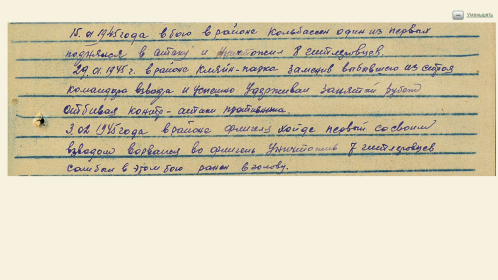 Уменьшить
15.01.1945 года в бою в районе Кольбассен один из первых
поднялся в атаку и уничтожил 8 гитлеровцев.
29.01.1945 г. в районе Кляйн-падка заменив выбывшего из строя
командира взвода и успешно удерживал занятый рубеж
отбивая контр-атаки противника.
3.02.1945 года в районе фмигеля хойде первой со своим
взводом ворвался во фмигель уничтожив 7 гитлеровцев
сам был в этом бою ранен в голову.